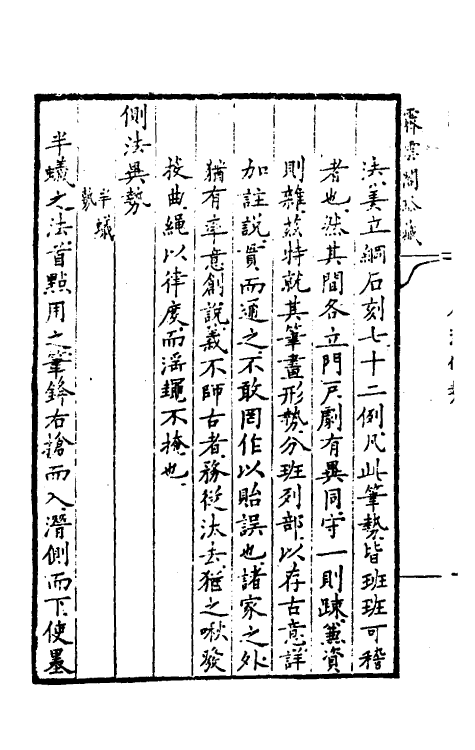 霏雲閣
法姜立綱石刻七十二例凡此筆勢皆班班可稽
者也然其間各立門戶劇有異同守一則踈兼資
則雜茲特就其筆畫形勢分班列部以存古意詳
加註說貫而通之不敢罔作以貽誤也諸家之外
猶有率意創說義不師古者務從汰去猶之啾發
投曲繩以律度而滛䵷不掩也
側法異勢
半蟻
勢
半蟻之法首點用之筆鋒右搶而入潛側而下使墨